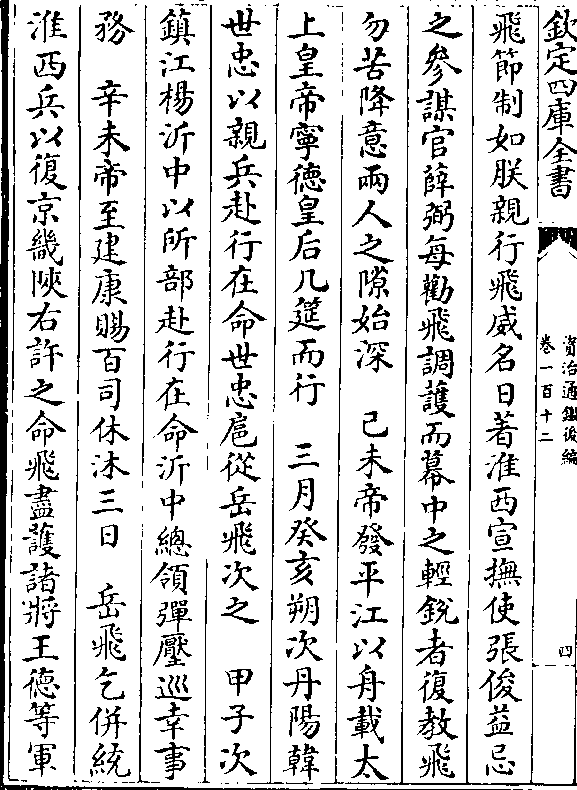 欽定四庫全書
資治通鑑後編
卷一百十二
四
飛節制如朕親行飛威名日著淮西宣撫使張俊益忌
之參謀官薛弼每勸飛調護而幕中之輕銳者復教飛
勿苦降意兩人之隙始深　己未帝發平江以舟載太
上皇帝寧德皇后几筵而行　三月癸亥朔次丹陽韓
世忠以親兵赴行在命世忠扈從岳飛次之　甲子次
鎮江楊沂中以所部赴行在命沂中總領彈壓巡幸事
務　辛未帝至建康賜百司休沐三日　岳飛乞併統
淮西兵以復京畿陜右許之命飛盡護諸將王德等軍